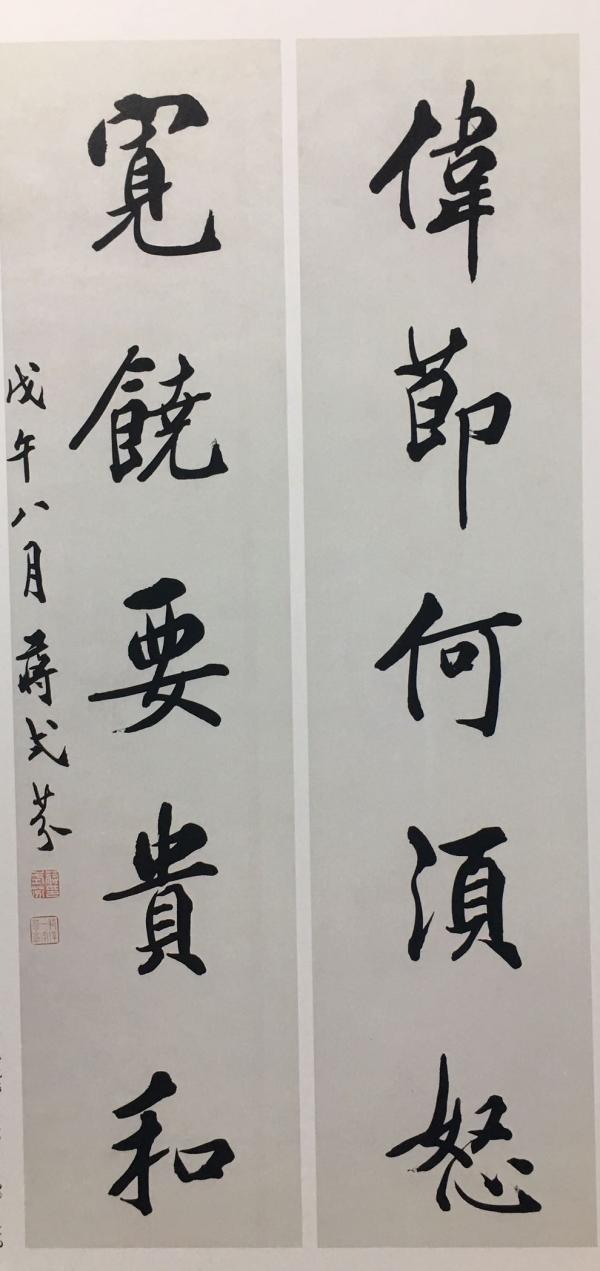 偉節何須怒
寬饒要貴和
戊午八月蔣式芬